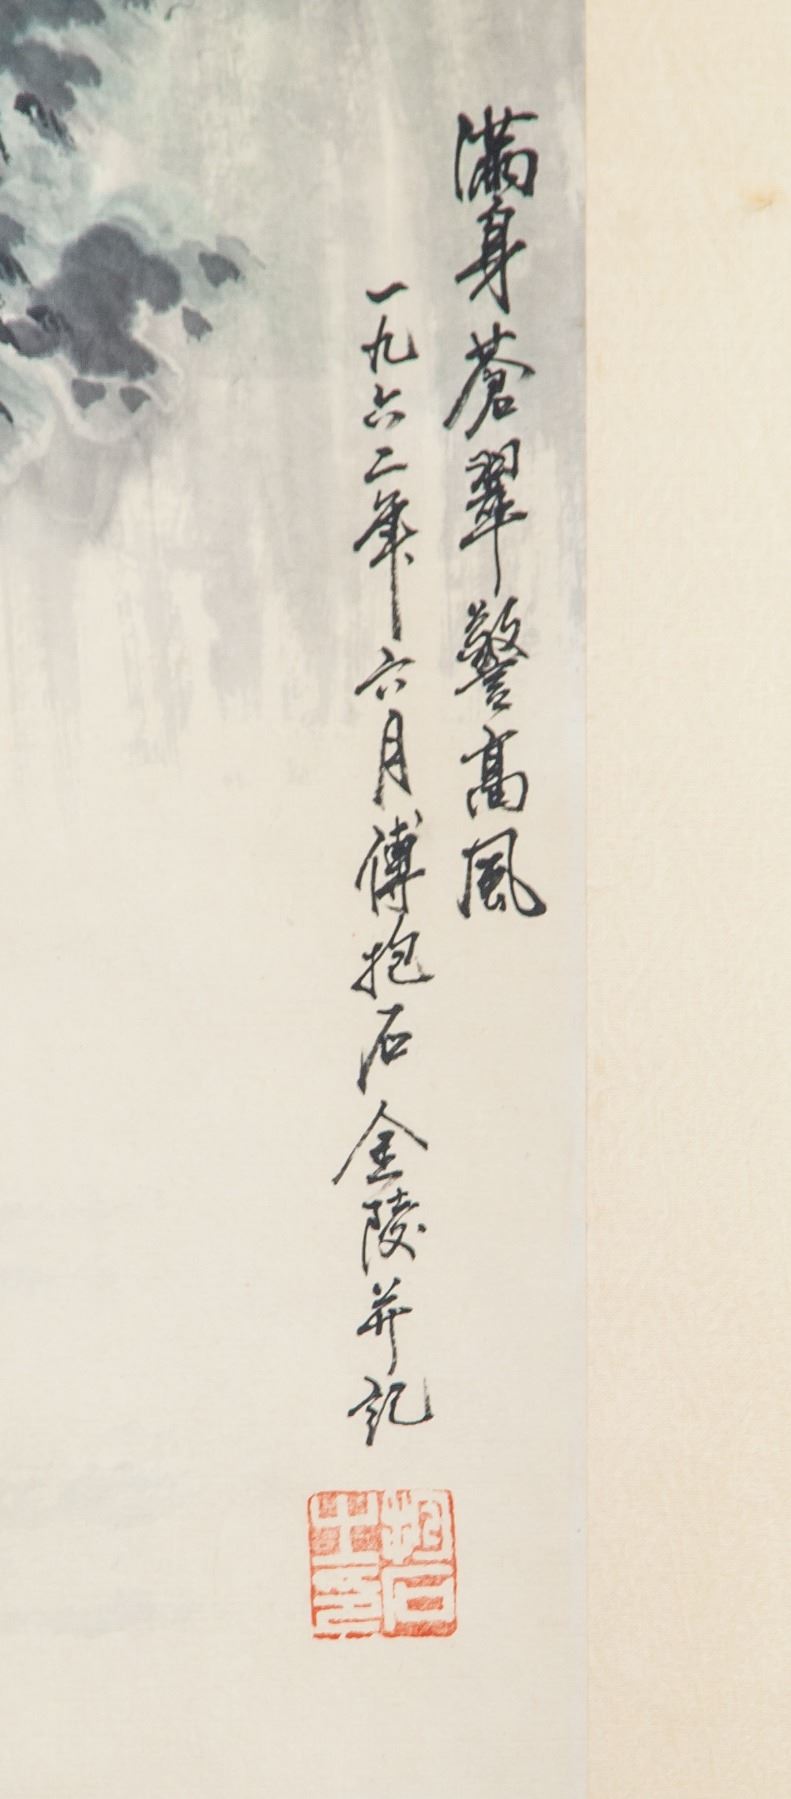 滿身蒼翠警高風
一九六二年六月傅抱石金陵并記
抱石之印